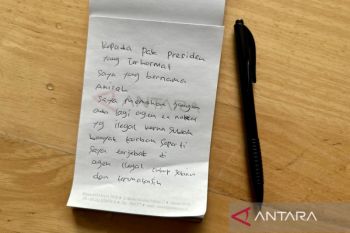 Kepada Pak Presiden
yang Terhormat
Saya yang bernama
Anisah
Saya memohon jangan
ada lagi agen
yg ilegal karna sudah
banyak korban seperti
saya terjebak di
agen ilegal cukup sekian
dan terimakasih
ANTARA